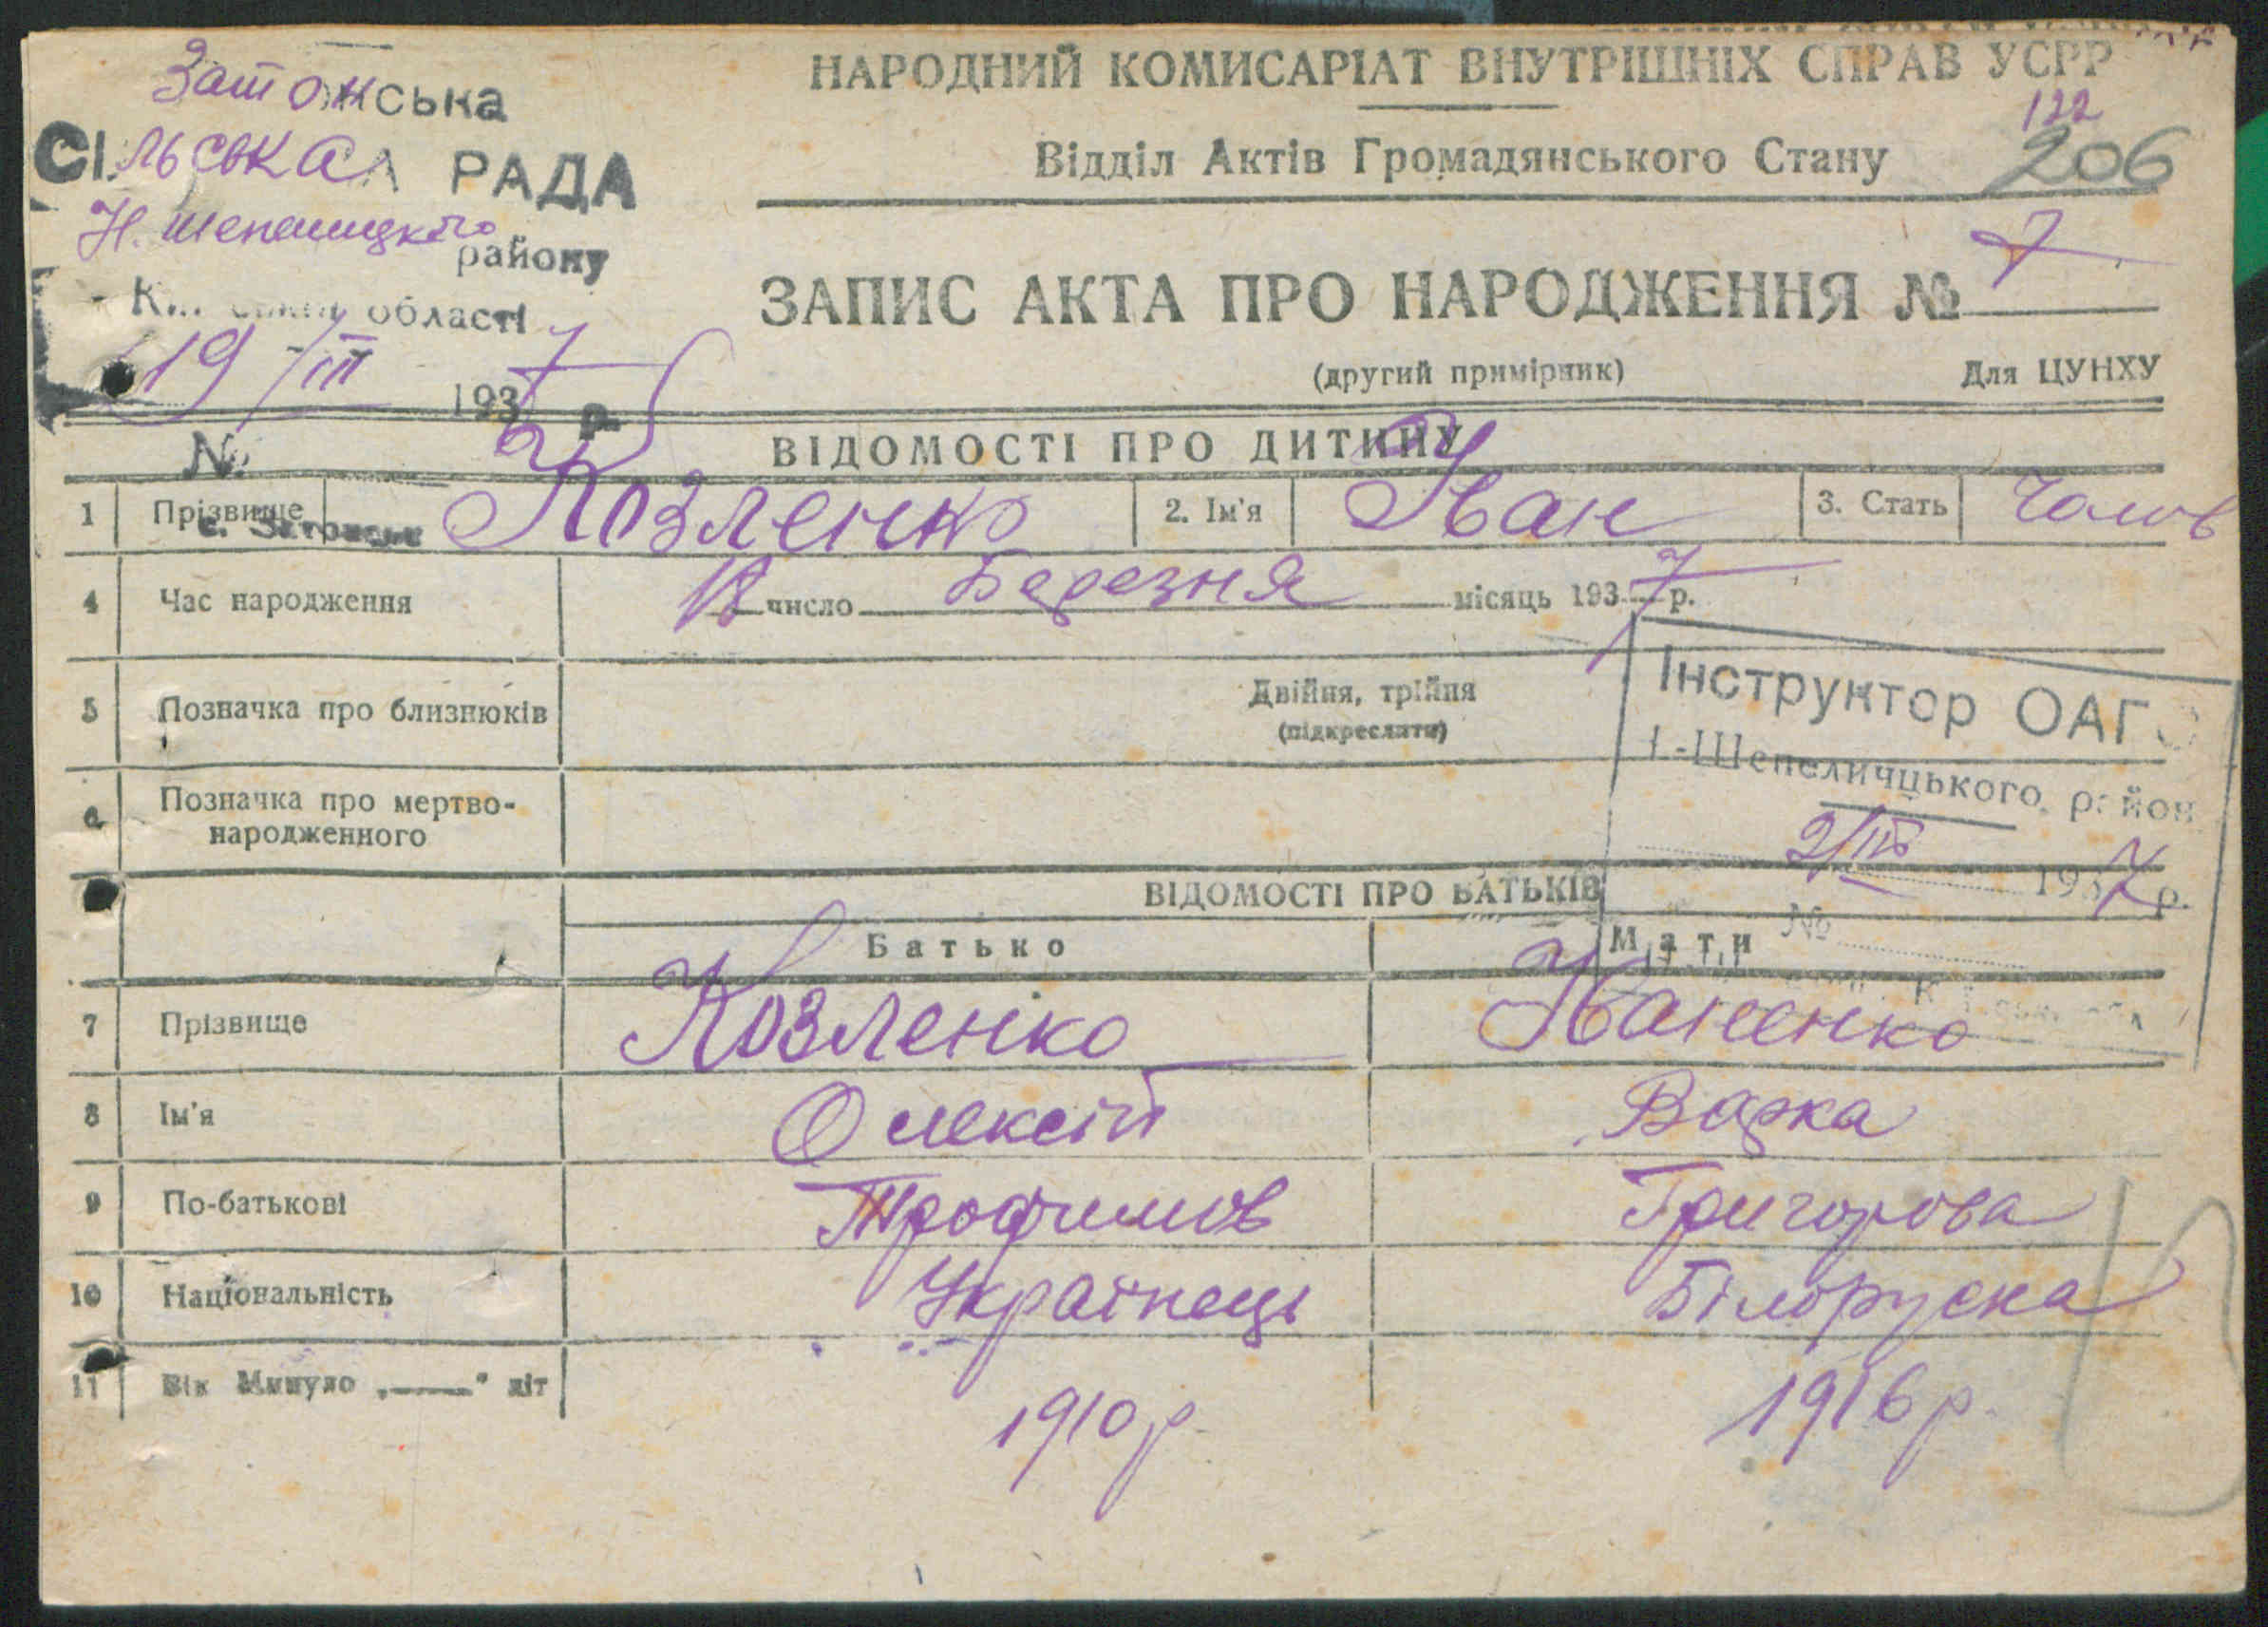 НАРОДНИЙ КОМИСАРІАТ ВНУТРІШНІХ СПРАВ УСРР
122
Відділ Актів Громадянського Стану 206
Затонська
СІЛЬСЬКА РАДА
Н. Шепелицкого
району
області
19/III 1937 р.
№
с. Затонськ
ЗАПИС АКТА ПРО НАРОДЖЕННЯ № 7
(другий примірник) Для ЦУНХУ
ВІДОМОСТІ ПРО ДИТИНУ
1 Прізвище Козленко 2. Ім'я Іван 3. Стать Чолов
4 Час народження число Березня місяць 1937 р.
5 Позначка про близнюків Двійня, трійня
(підкреслити)
Інструктор ОАГС
-Шепеличцького район
1937 р.
№
6 Позначка про мертво-
народженного
ВІДОМОСТІ ПРО БАТЬКІВ
Батько Мати
7 Прізвище Козленко Іваненко
8 Ім'я Олексій Варка
9 По-батькові Трофимов Григорова
10 Національність Українець Білоруска
11 Вік Минуло „——" літ 1910 р. 1916 р.